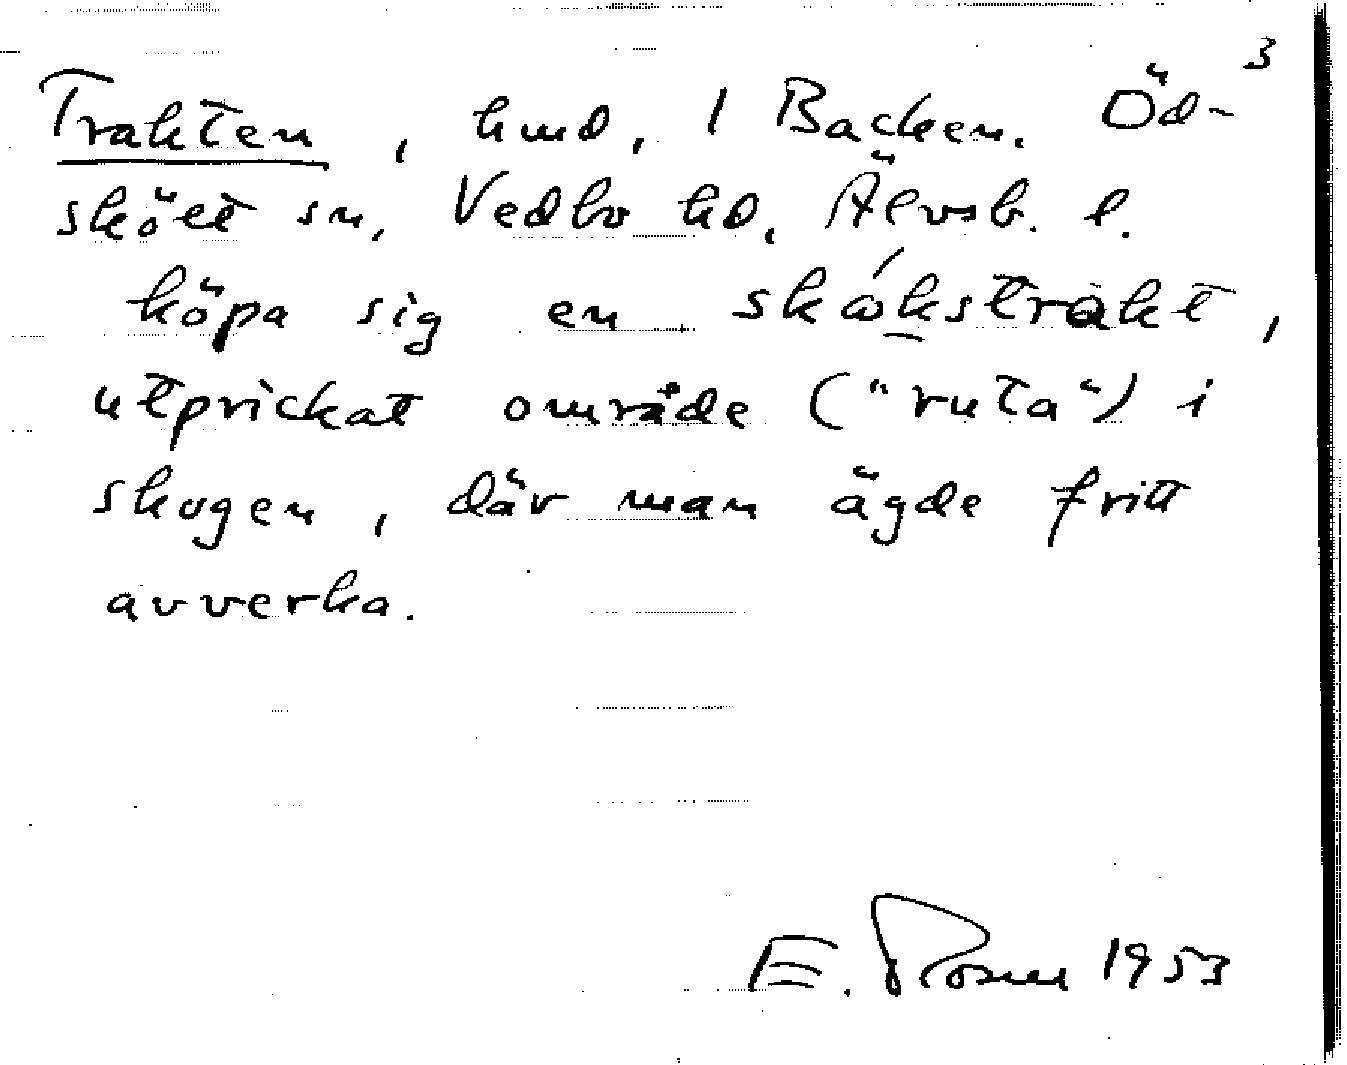 3
Trakten, hmd, 1 Backen. Öd-
skölt sn, Vedbo hd, Älvsb. l.
köpa sig en skókstrakt,
utprickat område ("ruta") i
skogen, där man ägde fritt
avverka.
E. Rosen 1953